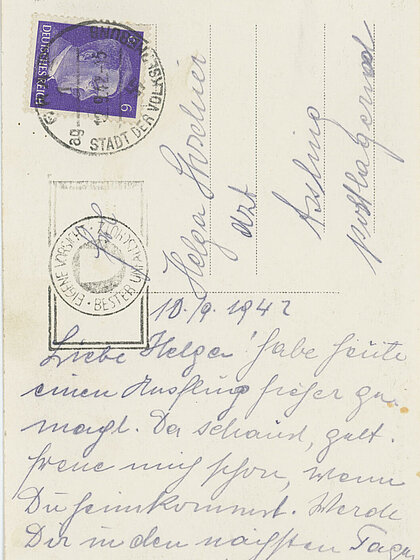 DEUTSCHES REICH
6
STADT DER VOL
EIGENE VORSICHT
BESTER UNFALLSCHUTZ
Helga
Arzt
postlagernd
10./9. 1942
Liebe Helga! habe heute
einen Ausflug hieher ge-
macht. Da schaust, gelt.
freue mich schon, wenn
Du heimkommst. Werde
Dir in den nächsten Tagen